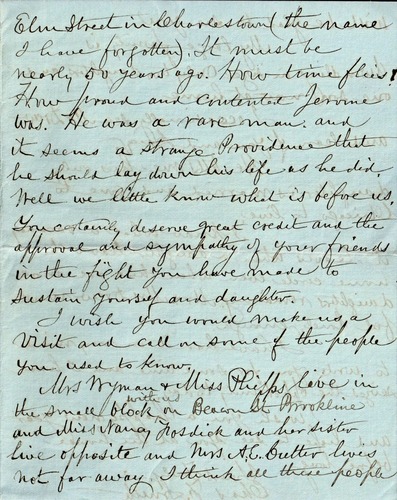 Elm Street in Charlestown (the name
I have forgotten). It must be
nearly 50 years ago. How time flies!
How proud and contented Jerome
was. He was a rare man: and
it seems a strange Providence that
he should lay down his life as he did.
Well we little know what is before us.
You certainly deserve great credit and the
approval and sympathy of your friends
in the fight you have made to
sustain yourself and daughter.
I wish you would make us a
visit and call on some of the people
you used to know.
Mrs Wyman & Miss Phipps live in
the small block with us on Beacon St Brookline
and Miss Nancy Fosdick and her sister
live opposite and Mrs A.E. Cutter lives
not far away I think all these people